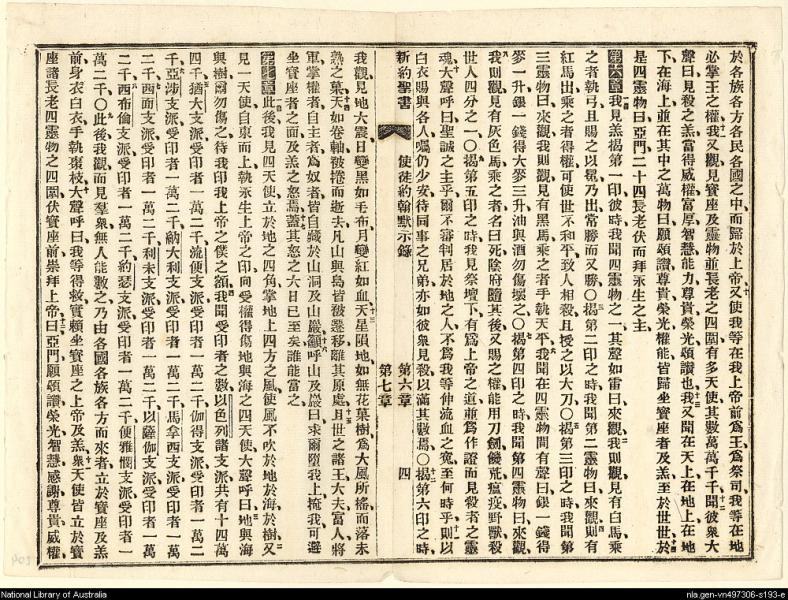 於各族各方各民各國之中而歸於上帝又使我等在我上帝前爲王爲祭司我等在地
必掌王之權我又觀見寶座及靈物並長老之四圍有多天使其數萬萬千千聞彼衆大
聲曰見殺之羔當得威權富厚智慧能力尊貴榮光頌讚也我又聞在天上在地上在地
下在海上並在其中之萬物曰願頌讚尊貴榮光權能皆歸坐寶座者及羔至於世世於
是四靈物曰亞門二十四長老伏而拜永生之主
第六章 我見羔揭第一印彼時我聞四靈物之一其聲如雷曰來觀我則觀見有白馬乘
之者執弓且賜之以冕乃出常勝而又勝○揭第二印之時我聞第二靈物曰來觀則有
紅馬出乘之者得權可使世不和平致人相殺且授之以大刀○揭第三印之時我聞第
三靈物曰來觀我則觀見有黑馬乘之者手執天平我聞在四靈物間有聲曰銀一錢得
麥一升銀一錢得大麥三升油與酒勿傷壞之○揭第四印之時我聞第四靈物曰來觀
我則觀見有灰色馬乘之者名曰死陰府隨其後又賜之權能用刀劍饑荒瘟疫野獸殺
世人四分之一○揭第五印之時我見祭壇下有爲上帝之道並爲作證而見殺者之靈
魂大聲呼曰聖誠之主乎爾不審判居於地之人不爲我等伸流血之寃至何時乎則以
白衣賜與各人囑仍少安待同事之兄弟亦如彼衆見殺以滿其數焉○揭第六印之時
新約聖書 使徒約翰默示錄 第六章 四
第七章
我觀見地大震日變黑如毛布月變紅如血天星隕地如無花菓樹爲大風所搖而落未
熟之菓天如卷軸被捲而逝去凡山與島皆被遷移離其原處且世之諸王大夫富人將
軍掌權者自主者爲奴者皆自藏於山洞及山巖籲呼山及巖曰求爾墮我上掩我可避
坐寶座者之面及羔之怒焉蓋其怒之大日已至矣誰能當之
第七章 此後我見四天使立於地之四角掌地上四方之風使風不吹於地於海於樹又
見一天使自東而上執永生上帝之印向受權得傷地與海之四天使大聲呼曰地與海
與樹爾勿傷之待我印我上帝之僕之額我聞受印者之數以色列諸支派共有十四萬
四千猶大支派受印者一萬二千流便支派受印者一萬二千伽得支派受印者一萬二
千亞涉支派受印者一萬二千納大利支派受印者一萬二千馬拿西支派受印者一萬
二千西面支派受印者一萬二千利未支派受印者一萬二千以薩伽支派受印者一萬
二千西布倫支派受印者一萬二千約瑟支派受印者一萬二千便雅憫支派受印者一
萬二千○此後我觀而見羣衆無人能數之乃由各國各族各方而來者立於寶座及羔
前身衣白衣手執棗枝大聲呼曰我等得救實賴坐寶座之上帝及羔衆天使皆立於寶
座諸長老四靈物之四圍伏寶座前崇拜上帝曰亞門願頌讚榮光智慧感謝尊貴威權
National Library of Australia
nla.gen-vn497306-s193-e